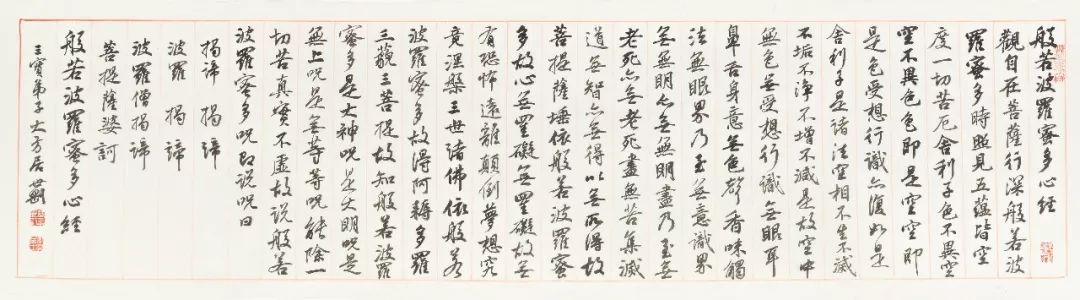 般若波羅蜜多心經
觀自在菩薩行深般若波
羅蜜多時照見五蘊皆空
度一切苦厄舍利子色不異空
空不異色色即是空空即
是色受想行識亦復如是
舍利子是諸法空相不生不滅
不垢不淨不增不減是故空中
無色無受想行識無眼耳
鼻舌身意無色聲香味觸
法無眼界乃至無意識界
無無明亦無無明盡乃至無
老死亦無老死盡無苦集滅
道無智亦無得以無所得故
菩提薩埵依般若波羅蜜
多故心無罣礙無罣礙故無
有恐怖遠離顛倒夢想究
竟涅槃三世諸佛依般若
波羅蜜多故得阿耨多羅
三藐三菩提故知般若波羅
蜜多是大神呪是大明呪是
無上呪是無等等呪能除一
切苦真實不虛故說般若
波羅蜜多呪即說呪曰
揭諦 揭諦
波羅 揭諦
波羅僧揭諦
菩提薩婆訶
般若波羅蜜多心經
三寶弟子大方居